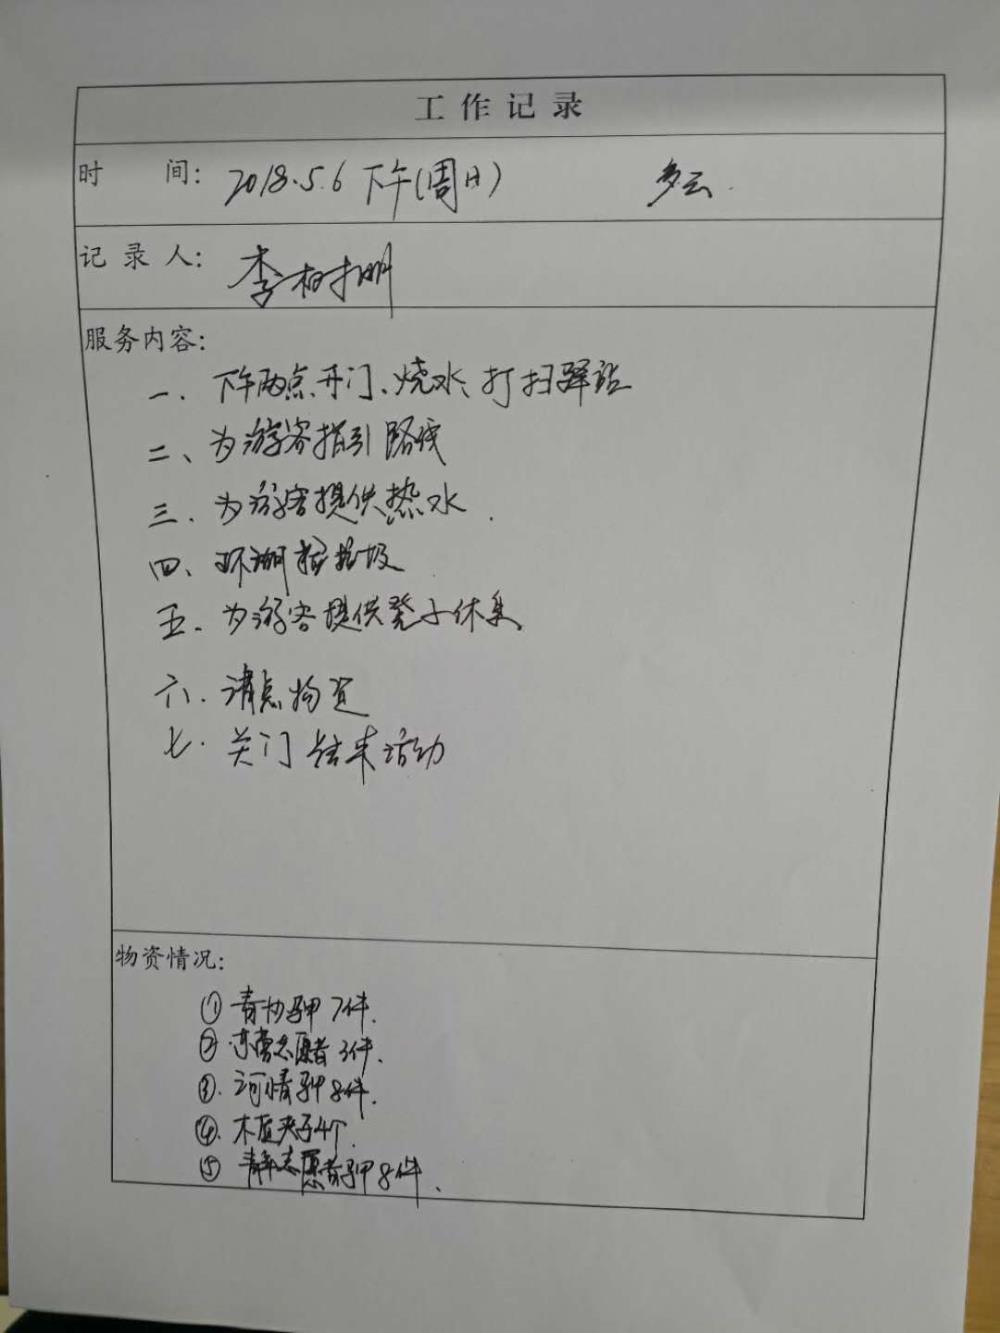 工作记录
时 间: 2018.5.6 下午(周日) 多云.
记录人: 李树明
服务内容:
一. 下午两点开门、烧水、打扫驿站
二、为游客指引路线
三. 为游客提供热水.
四、环湖捡垃圾
五. 为游客提供凳子休息
六. 清点物资
七. 关门 结束活动
物资情况:
① 青协马甲 7件.
② 志愿者 3件.
③. 河情马甲 8件.
④. 木质夹子4个.
⑤ 青年志愿者马甲 8件.